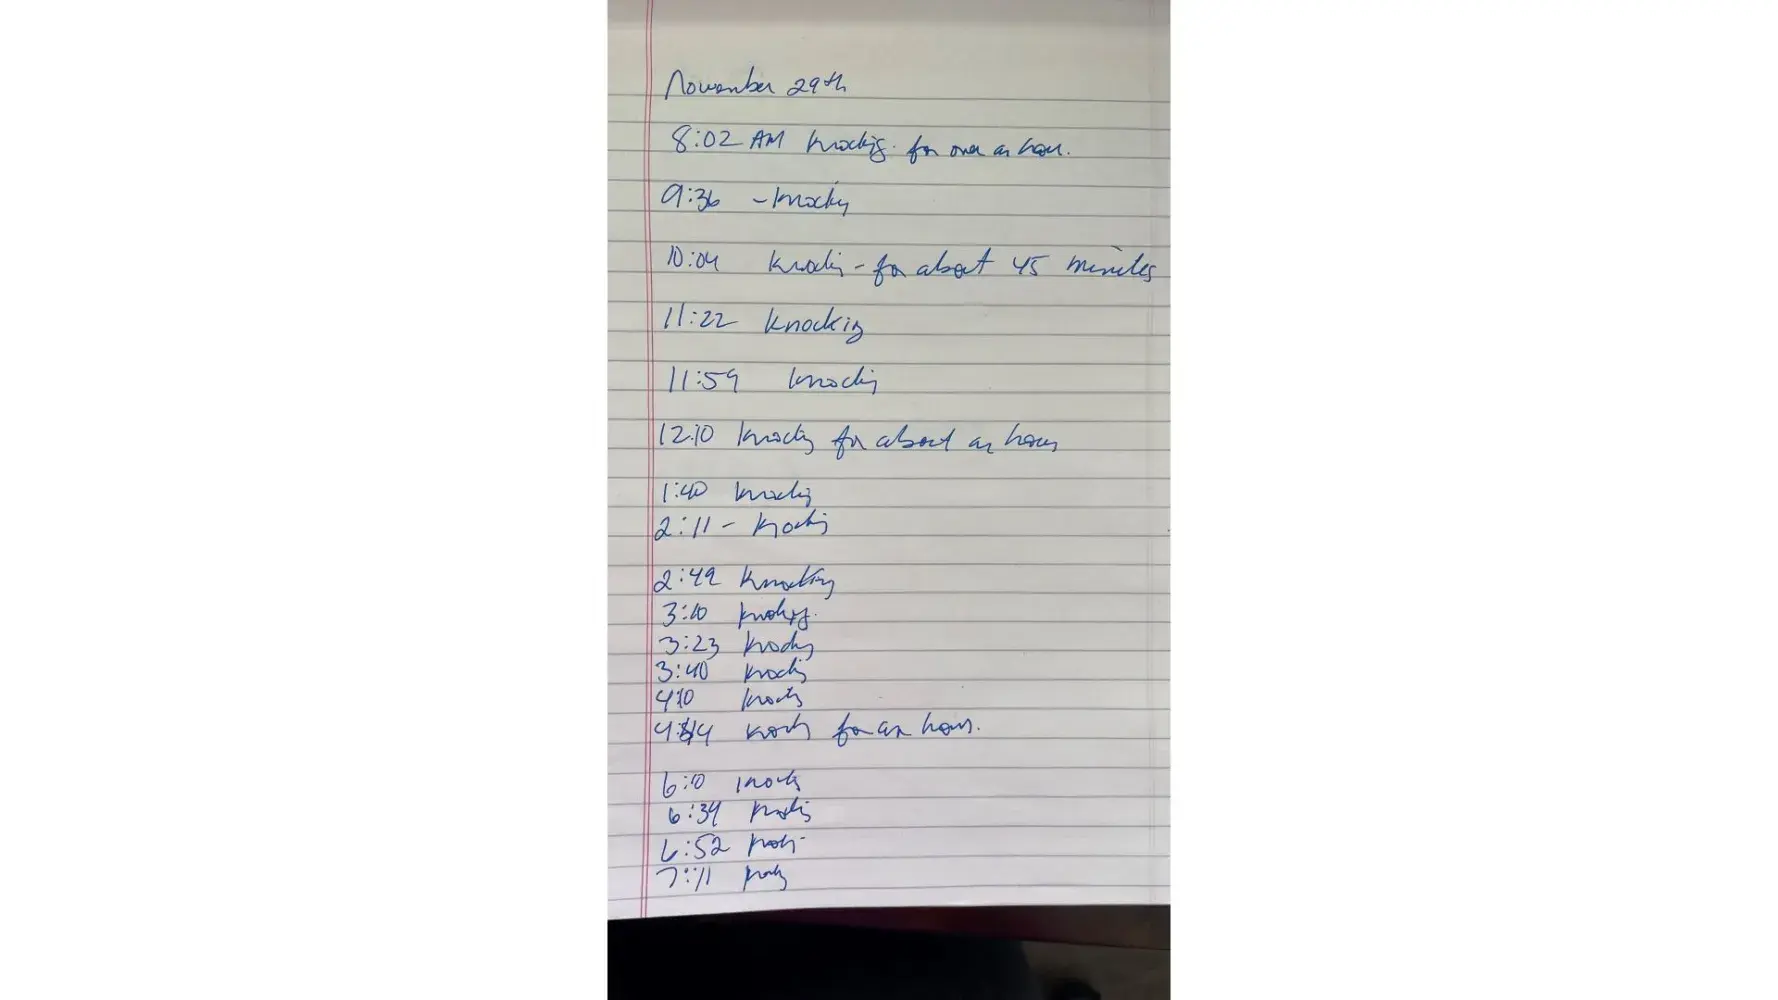 November 29th
8:02 AM knocking. for over an hour.
9:36 - knocking
10:04 knocking - for about 45 minutes
11:22 knocking
11:59 knocking
12:10 knocking for about an hour
1:40 knocking
2:11 - knocking
2:49 knocking
3:10 knocking.
3:23 knocking
3:40 knocking
4:10 knocking
knocking for an hour.
knocking
6:34 knocking
6:52 knocking
7:11 knocking